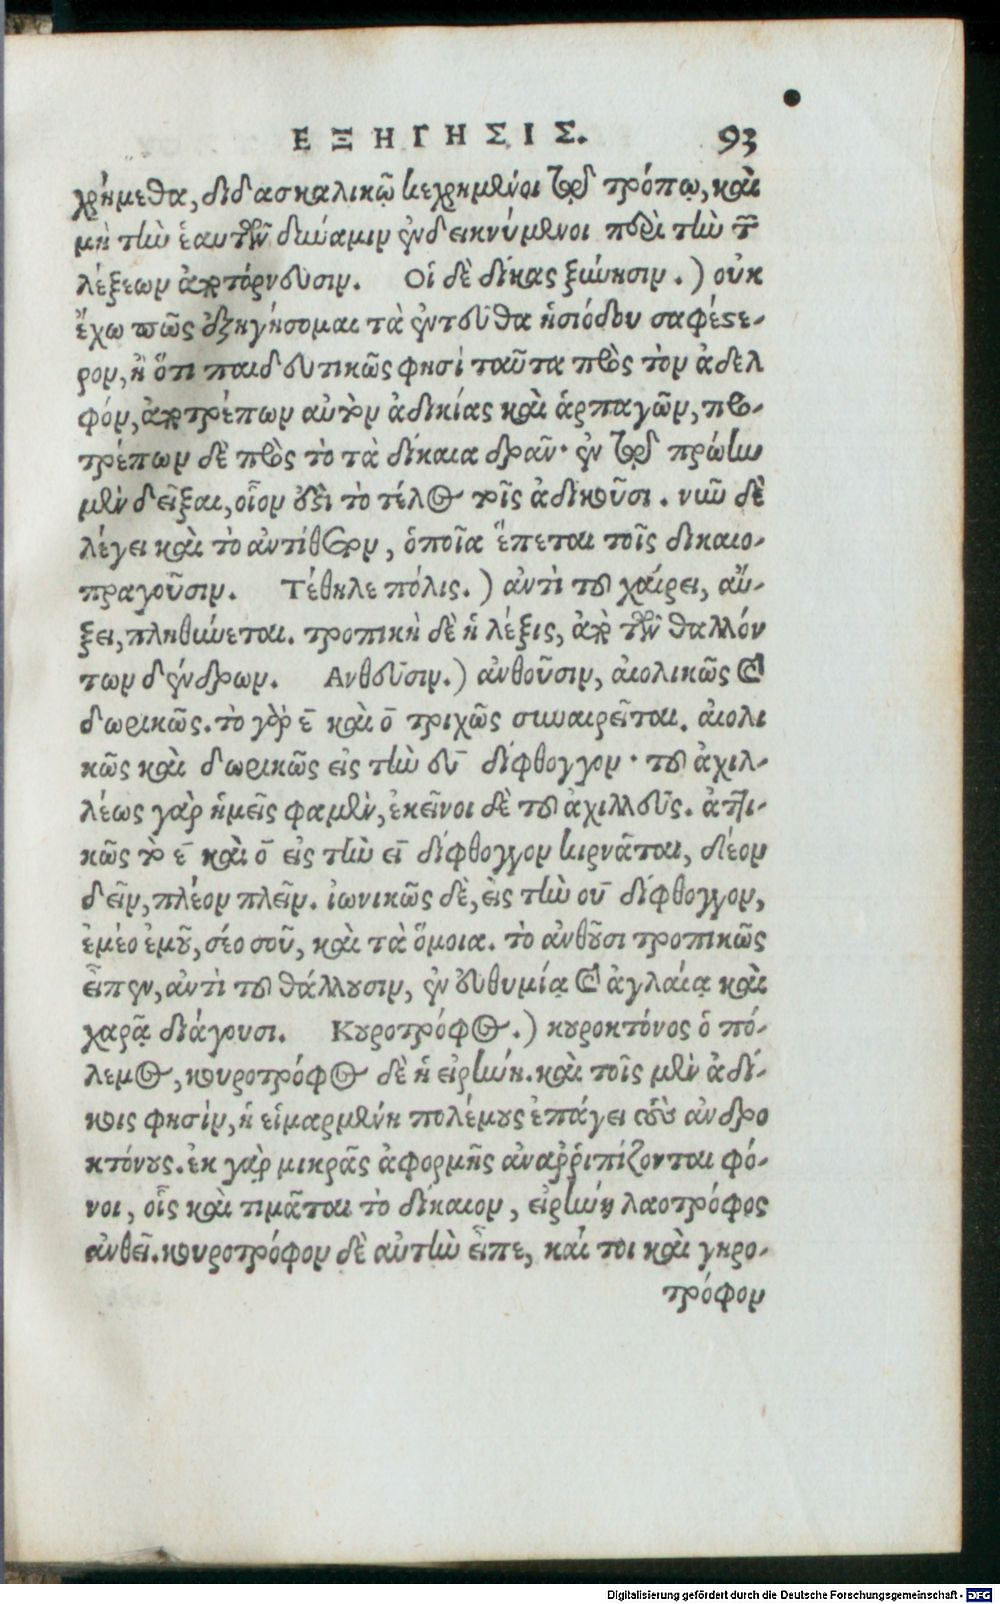 ΕΞΗΓΗΣΙΣ. 93
χρήμεθα, διδασκαλικῷ κεχρημένοι τῷ τρόπῳ, καὶ
μὴ τὴν ἑαυτῶν δύναμιν ἐνδεικνύμενοι περὶ τὴν τῶν
λέξεων ἀποτόρνευσιν. Οἱ δὲ δίκας ξυνησιν.) οὐκ
ἔχω πῶς ἐξηγήσομαι τὰ ἐντεῦθα ἡσιόδου σαφέστε-
ρον, ἢ ὅτι παιδευτικῶς φησί ταῦτα πρὸς τὸν ἀδελ
φόν, ἀποτρέπων αὐτὸν ἀδικίας καὶ ἁρπαγῶν, προ-
τρέπων δὲ πρὸς τὸ τὰ δίκαια δρᾶν· ἐν τῷ πρώην
μὲν δεῖξαι, οἷον εὑρεῖ τὸ τέλος τοῖς ἀδικοῦσι. νῦν δὲ
λέγει καὶ τὸ ἀντίθετον, ὁποῖα ἕπεται τοῖς δικαιο-
πραγοῦσιν. Τέθηλε πόλις.) ἀντὶ τοῦ χαίρει, αὔ-
ξει, πληθύνεται. τροπικὴ δὲ ἡ λέξις, ἀπὸ τῶν θαλλόν
των δένδρων. Ανθεῦσιν.) ἀνθοῦσιν, αἰολικῶς καὶ
δωρικῶς. τὸ γὰρ ε̄ καὶ ο̄ τριχῶς συναιρεῖται. αἰολι
κῶς καὶ δωρικῶς εἰς τὴν εῡ δίφθογγον· τοῦ ἀχιλ-
λέως γὰρ ἡμεῖς φαμὲν, ἐκεῖνοι δὲ τοῦ ἀχιλλεῦς. ἀττι-
κῶς τὸ ε̄ καὶ ο̄ εἰς τὴν εῑ δίφθογγον κιρνᾶται, δέον
δεῖν, πλέον πλεῖν. ἰωνικῶς δὲ, εἰς τὴν οῡ δίφθογγον,
ἐμέο ἐμοῦ, σέο σοῦ, καὶ τὰ ὅμοια. τὸ ἀνθοῦσι τροπικῶς
εἶπεν, ἀντὶ τοῦ θάλλουσιν, ἐν εὐθυμίᾳ καὶ ἀγλαίᾳ καὶ
χαρᾷ διάγουσι. Κουροτρόφος.) κουροκτόνος ὁ πό-
λεμος, κουροτρόφος δὲ ἡ εἰρήνη. καὶ τοῖς μὲν ἀδί-
κοις φησὶν, ἡ εἱμαρμένη πολέμους ἐπάγει τοὺς ἀνδρο
κτόνους. ἐκ γὰρ μικρᾶς ἀφορμῆς ἀναῤῥιπίζονται φό-
νοι, οἷς καὶ τιμᾶται τὸ δίκαιον, εἰρήνη λαοτρόφος
ἀνθεῖ. κουροτρόφον δὲ αὐτὴν εἶπε, καί τοι καὶ γηρο-
τρόφον
Digitalisierung gefördert durch die Deutsche Forschungsgemeinschaft - DFG